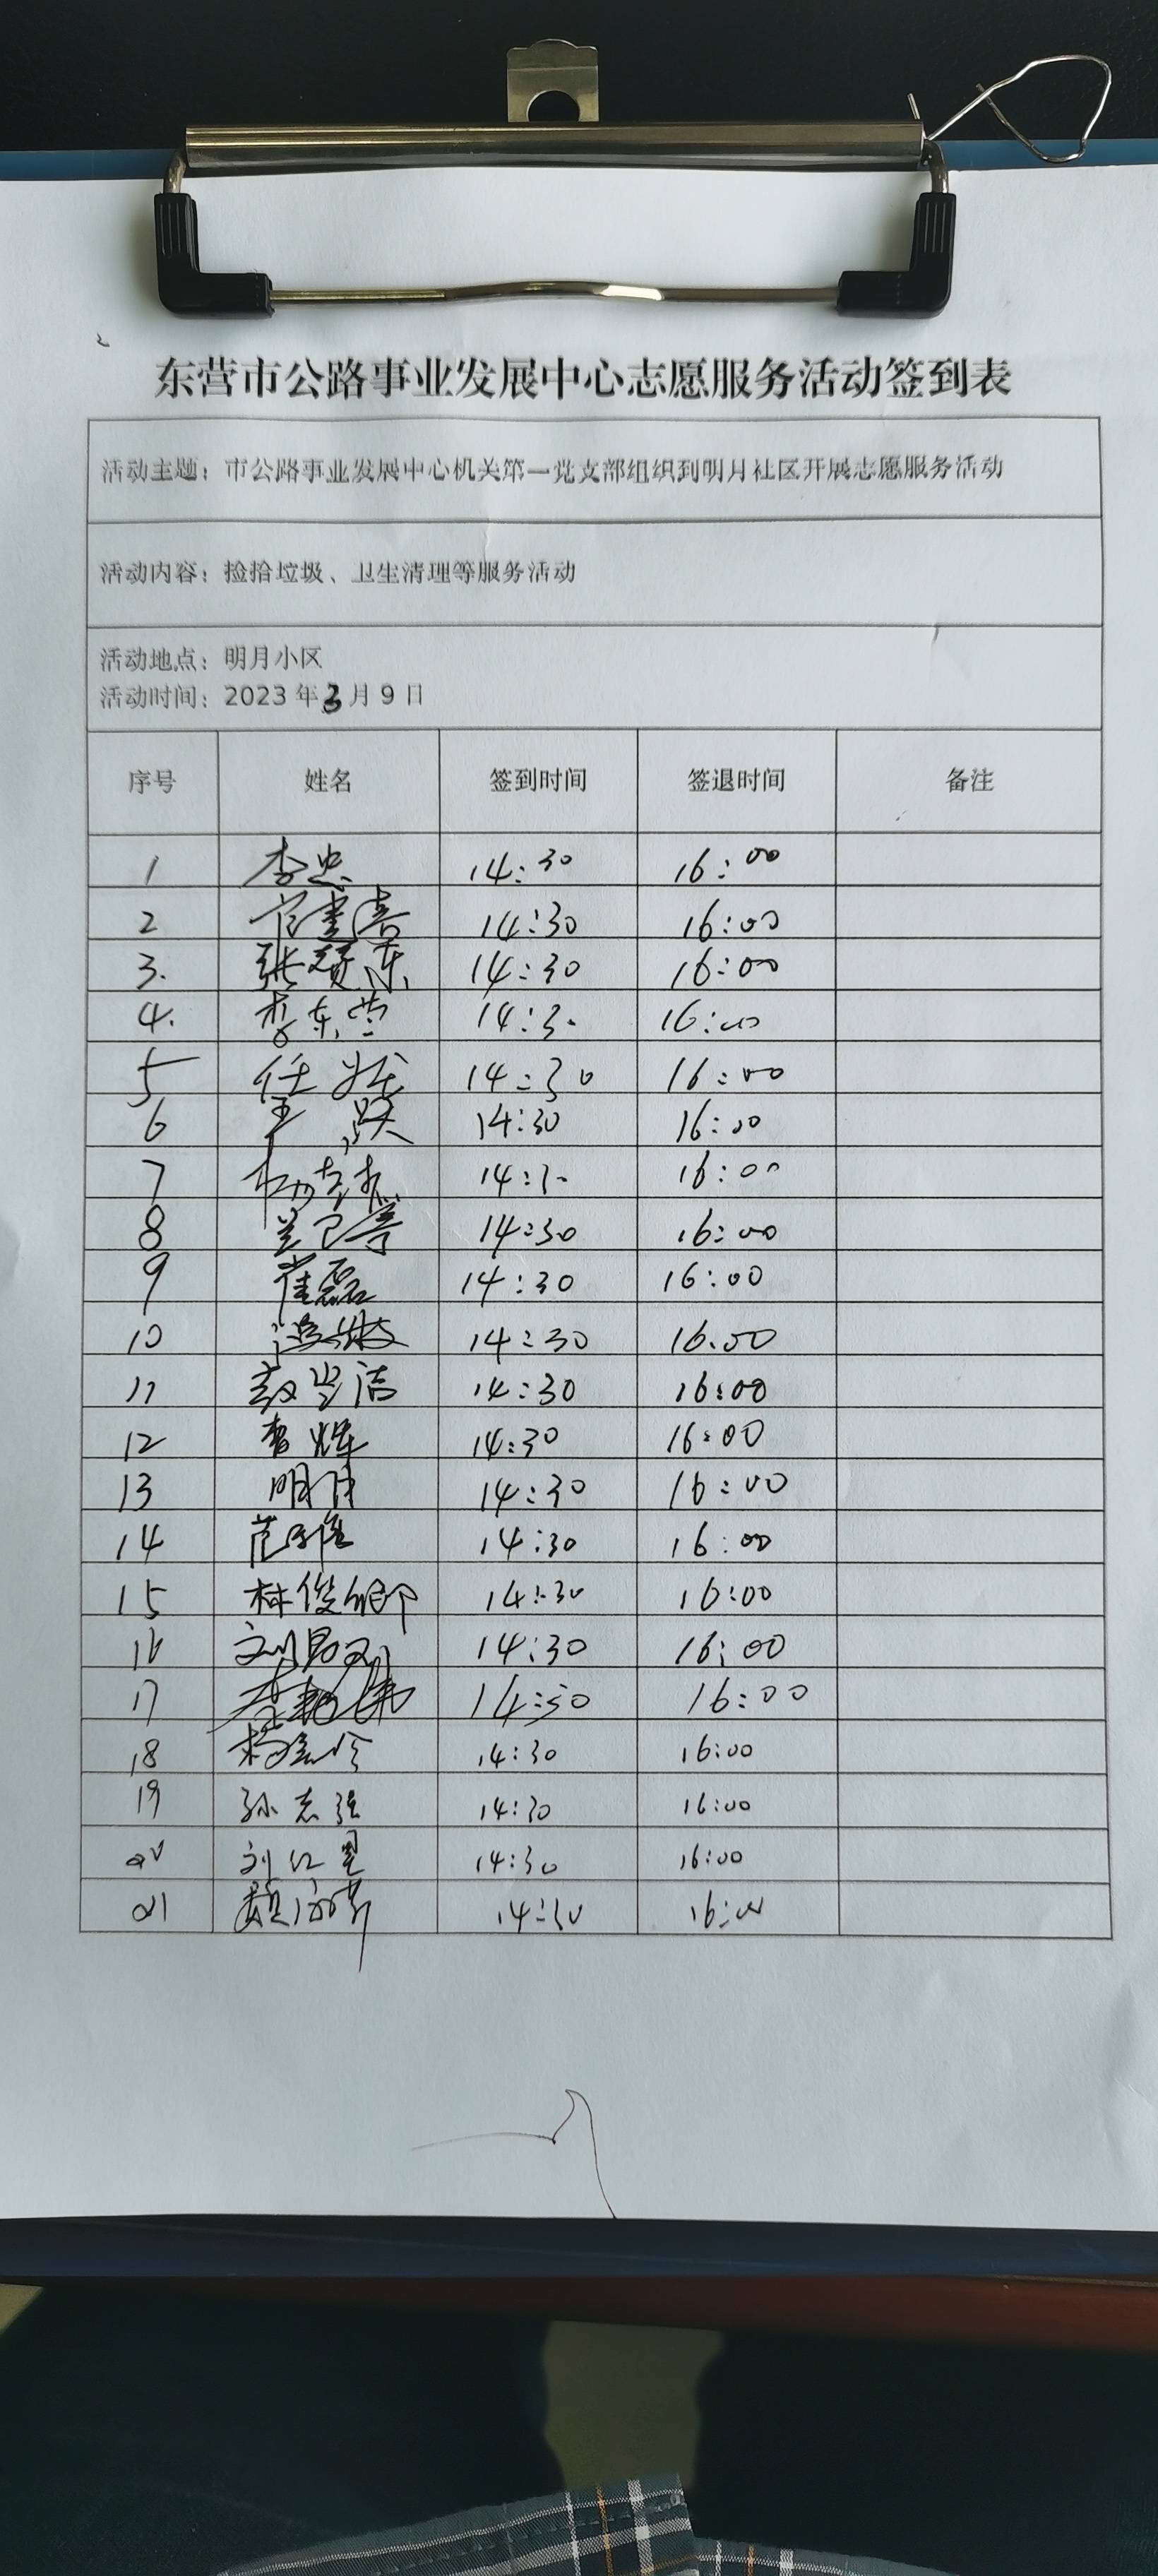 东营市公路事业发展中心志愿服务活动签到表
活动主题：市公路事业发展中心机关第一党支部组织到明月社区开展志愿服务活动
活动内容：捡拾垃圾、卫生清理等服务活动
活动地点：明月小区
活动时间：2023年3月9日
序号 姓名 签到时间 签退时间 备注
1 李忠 14:30 16:00
2 14:30 16:00
3. 张 东 14:30 16:00
4. 李东营 14:30 16:00
5 任 14:30 16:00
6 王 14:30 16:00
7 杨 14:30 16:00
8 14:30 16:00
9 崔磊 14:30 16:00
10 14:30 16.00
11 洁 14:30 16:00
12 14:30 16:00
13 明 14:30 16:00
14 范 14:30 16:00
15 林俊 14:30 16:00
16 刘 14:30 16:00
17 李 14:30 16:00
18 杨 14:30 16:00
19 孙志强 14:30 16:00
20 刘红星 14:30 16:00
21 14:30 16:00